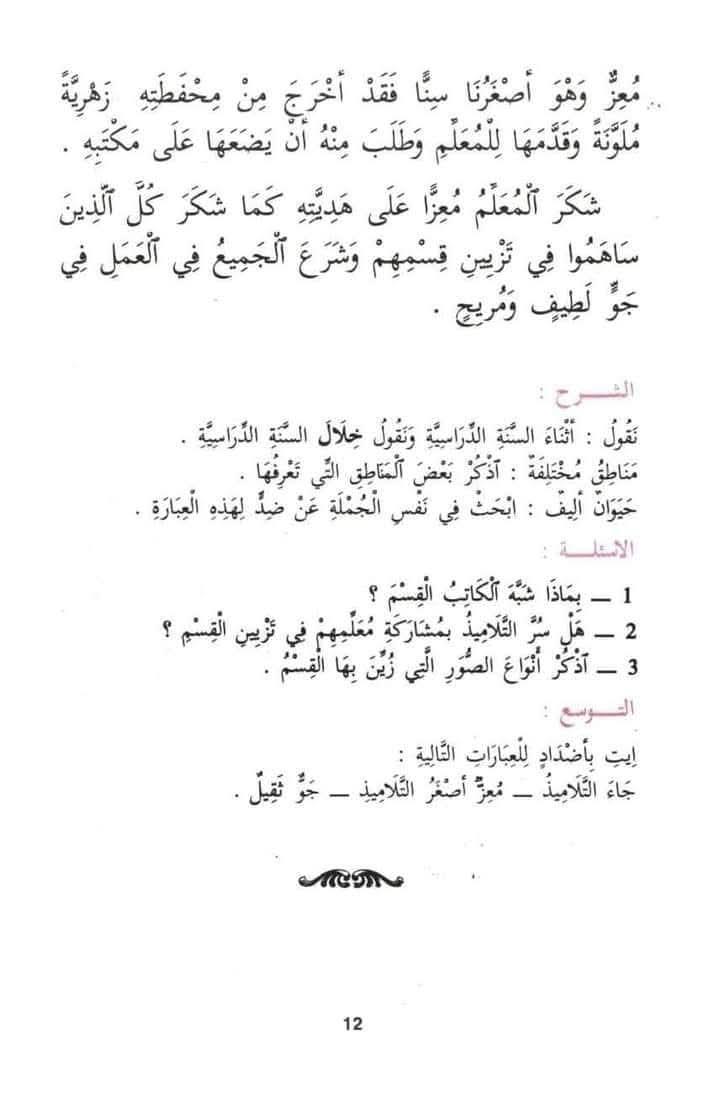 مُعِزٌّ وَهْوَ أَصْغَرُنَا سِنًّا فَقَدْ أَخْرَجَ مِنْ مِحْفَظَتِهِ زَهْرِيَّةً
مُلَوَّنَةً وَقَدَّمَهَا لِلْمُعَلِّمِ وَطَلَبَ مِنْهُ أَنْ يَضَعَهَا عَلَى مَكْتَبِهِ .
شَكَرَ ٱلْمُعَلِّمُ مُعِزًّا عَلَى هَدِيَّتِهِ كَمَا شَكَرَ كُلَّ ٱلَّذِينَ
سَاهَمُوا فِي تَزْيِينِ قِسْمِهِمْ وَشَرَعَ ٱلْجَمِيعُ فِي ٱلْعَمَلِ فِي
جَوٍّ لَطِيفٍ وَمُرِيحٍ .
الشـــرح :
نَقُولُ : أَثْنَاءَ السَّنَةِ الدِّرَاسِيَّةِ وَنَقُولُ خِلَالَ السَّنَةِ الدِّرَاسِيَّةِ .
مَنَاطِقُ مُخْتَلِفَةٌ : اَذْكُرْ بَعْضَ ٱلْمَنَاطِقِ التِّي تَعْرِفُهَا .
حَيَوَانٌ أَلِيفٌ : ابْحَثْ فِي نَفْسِ الْجُمْلَةِ عَنْ ضِدٍّ لِهَذِهِ الْعِبَارَةِ .
الاسئلـــة :
1 ـ بِمَاذَا شَبَّهَ ٱلْكَاتِبُ الْقِسْمَ ؟
2 ـ هَلْ سُرَّ التَّلَامِيذُ بِمُشَارَكَةِ مُعَلِّمِهِمْ فِي تَزْيِينِ الْقِسْمِ ؟
3 ـ اَذْكُرْ أَنْوَاعَ الصُّوَرِ الَّتِي زُيِّنَ بِهَا الْقِسْمُ .
التـــوسع :
اِيتِ بِأَضْدَادٍ لِلْعِبَارَاتِ التَّالِيةِ :
جَاءَ التَّلَامِيذُ ـ مُعِزٌّ أَصْغَرُ التَّلَامِيذِ ـ جَوٌّ ثَقِيلٌ .
12